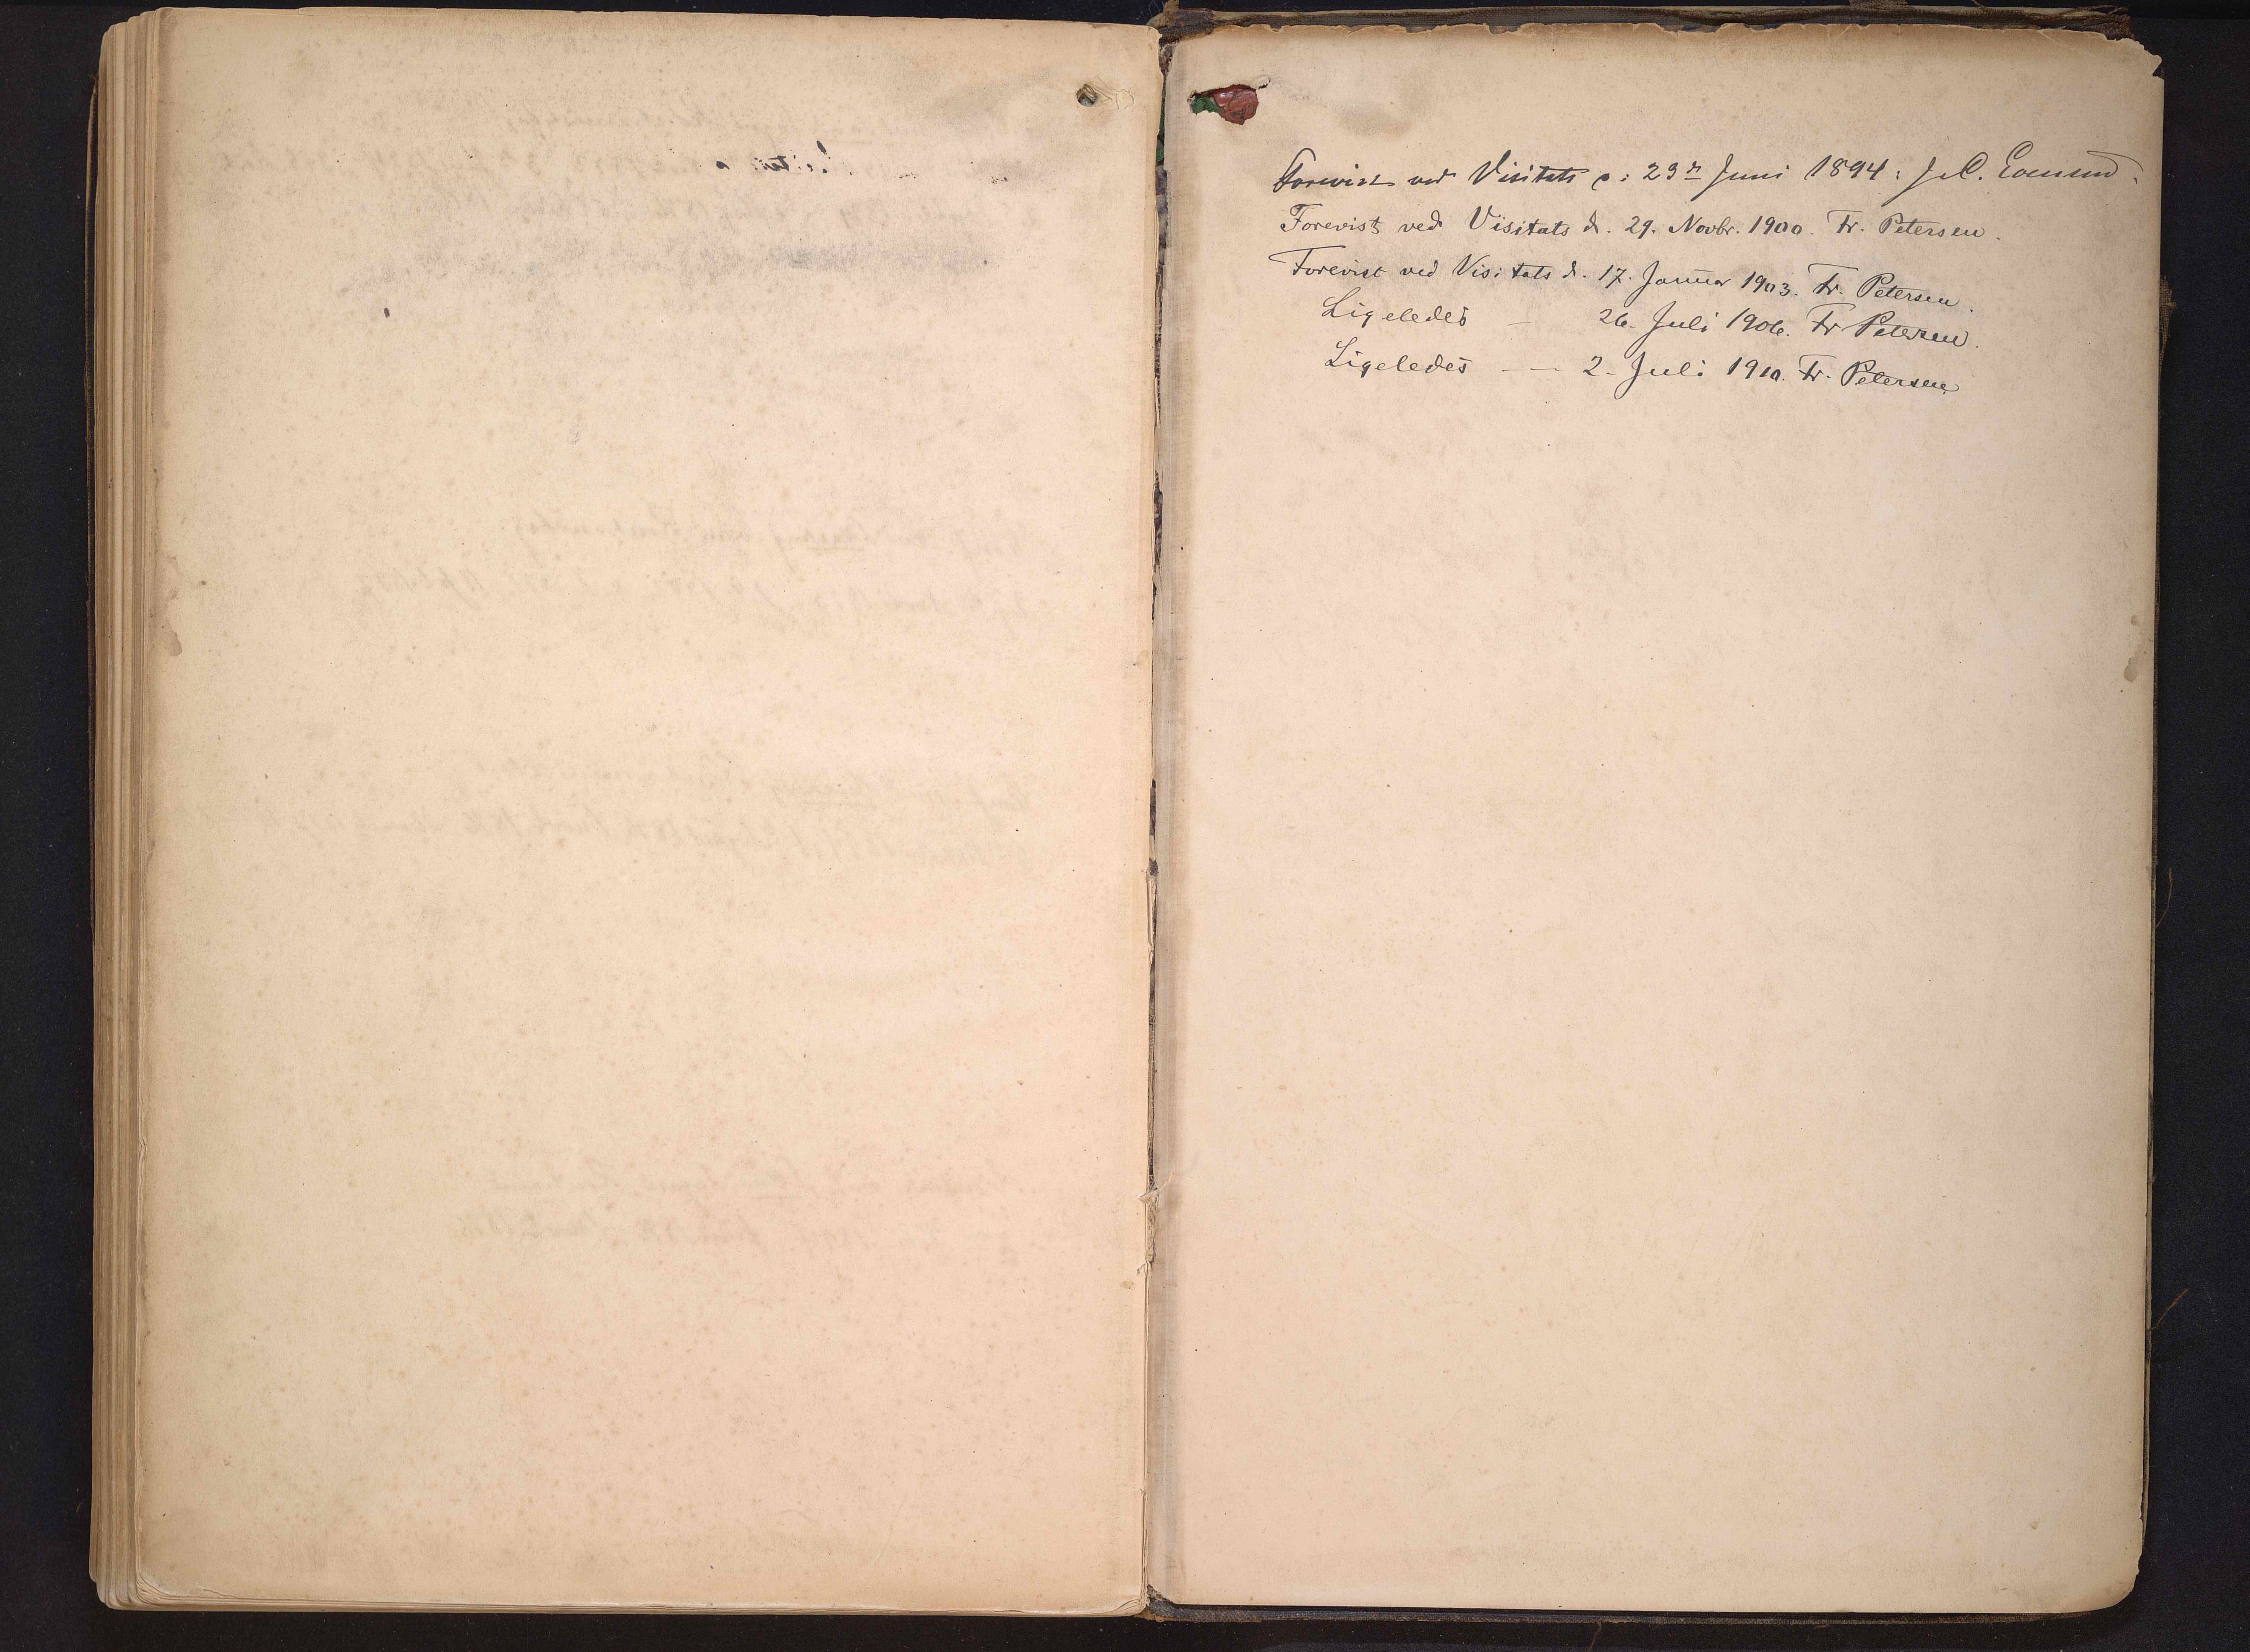 Forevist ved Visitats d: 23n Juni 1894: J. C.
Forevist ved Visitats d. 29. Novbr. 1900. Fr. Petersen.
Forevist ved Visitats d. 17. Januar 1903. Fr. Petersen.
Ligeledes — 26. Juli 1906. Fr Petersen.
Ligeledes — — 2. Juli 1910. Fr. Petersen.